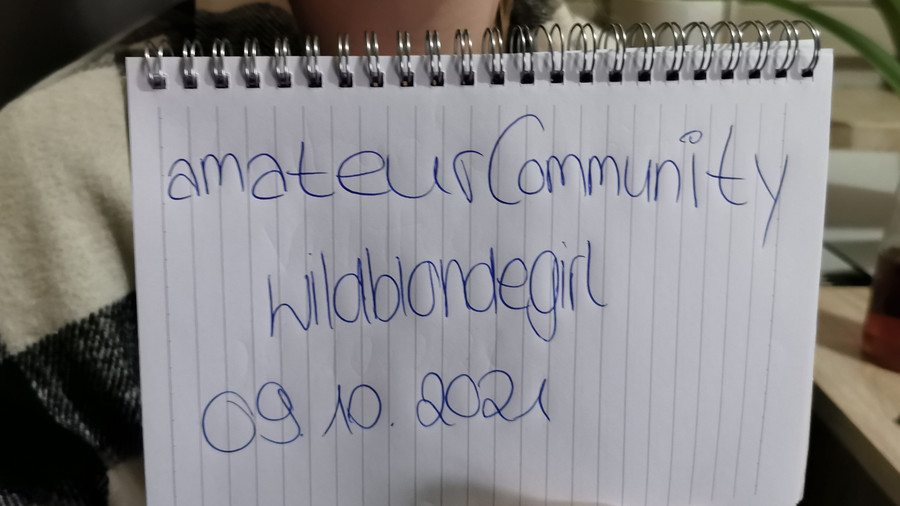 amateurCommunity
wildblondegirl
09.10.2021